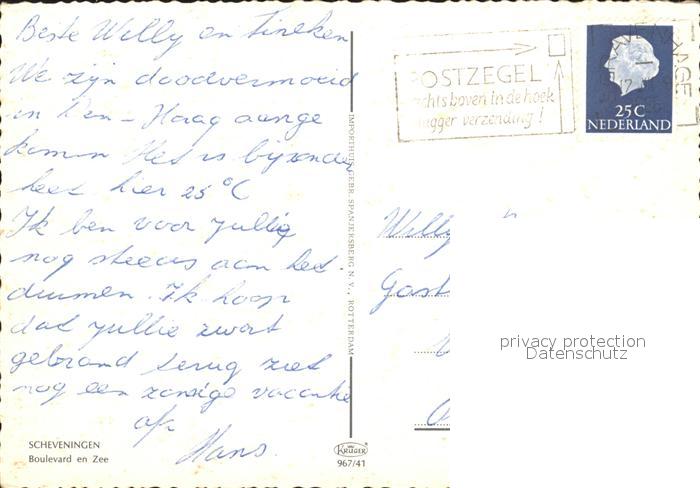 Beste Willy en Tineken
We zijn doodvermoeid
in Den-Haag aange
komen Het is bijzonder
heet hier 25 °C
Ik ben voor jullie
nog steeds aan het
duimen. Ik hoop
dat jullie zwart
gebrand terug ziet
nog een zonnige vacantie
Hans.
SCHEVENINGEN
Boulevard en Zee
IMPORTHUIS GEBR. SPANJERSBERG N.V., ROTTERDAM
KRÜGER
967/41
OSTZEGEL
chts boven in de hoek
ugger verzending!
25 C
NEDERLAND
Willy
Gast
privacy protection
Datenschutz